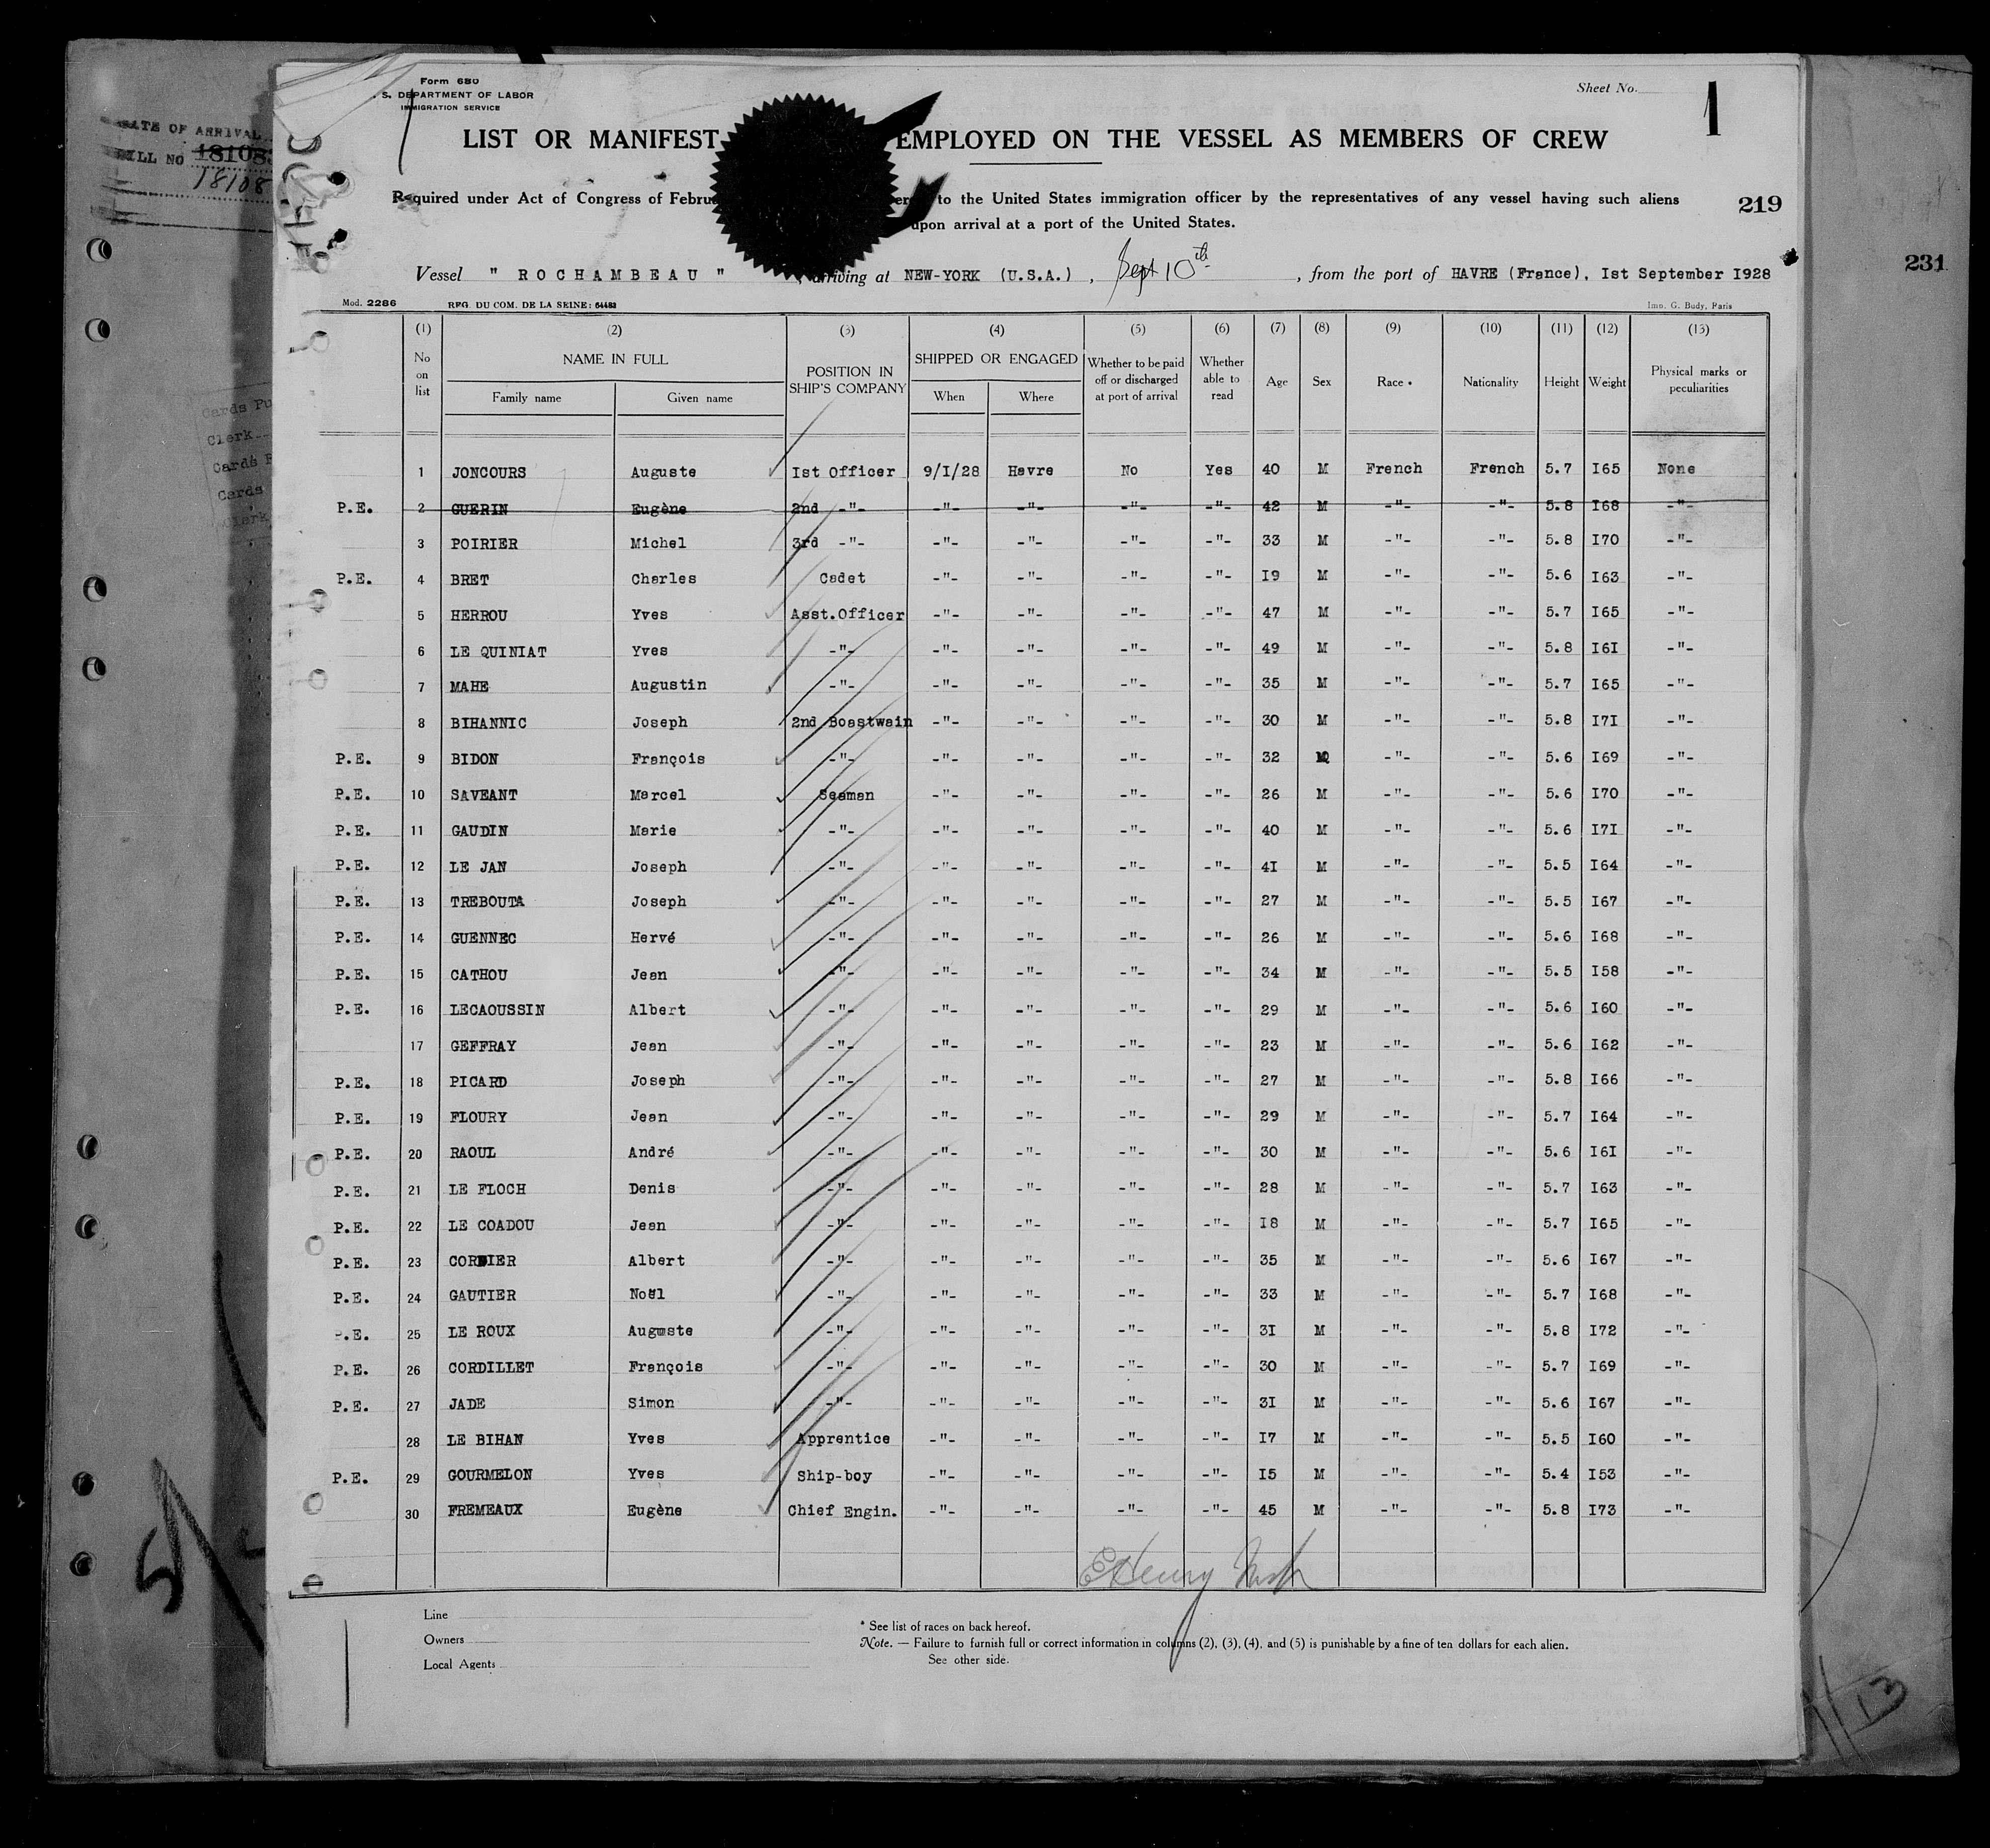 Form 680
S. DEPARTMENT OF LABOR
IMMIGRATION SERVICE
Sheet No. 1
DATE OF ARRIVAL
BILL NO 18108
18108
LIST OR MANIFEST EMPLOYED ON THE VESSEL AS MEMBERS OF CREW
Required under Act of Congress of to the United States immigration officer by the representatives of any vessel having such aliens
219
upon arrival at a port of the United States.
231
Vessel " ROCHAMBEAU " , arriving at NEW-YORK (U.S.A.) , Sept 10th , from the port of HAVRE (France), Ist September I928
Mod. 2286 REG. DU COM. DE LA SEINE: 64483 Imp. G. Budy, Paris
(1) (2) (3) (4) (5) (6) (7) (8) (9) (10) (11) (12) (13)
No on list NAME IN FULL Family name Given name POSITION IN SHIP'S COMPANY SHIPPED OR ENGAGED When Where Whether to be paid off or discharged at port of arrival Whether able to read Age Sex Race * Nationality Height Weight Physical marks or peculiarities
1 JONCOURS Auguste Ist Officer 9/I/28 Havre No Yes 40 M French French 5.7 I65 None
P.E. 2 GUERIN Eugène 2nd -"- -"- -"- -"- -"- 42 M -"- -"- 5.8 I68 -"-
3 POIRIER Michel 3rd -"- -"- -"- -"- -"- 33 M -"- -"- 5.8 I70 -"-
P.E. 4 BRET Charles Cadet -"- -"- -"- -"- I9 M -"- -"- 5.6 I63 -"-
5 HERROU Yves Asst.Officer -"- -"- -"- -"- 47 M -"- -"- 5.7 I65 -"-
6 LE QUINIAT Yves -"- -"- -"- -"- -"- 49 M -"- -"- 5.8 I6I -"-
7 MAHE Augustin -"- -"- -"- -"- -"- 35 M -"- -"- 5.7 I65 -"-
8 BIHANNIC Joseph 2nd Boastwain -"- -"- -"- -"- 30 M -"- -"- 5.8 I7I -"-
P.E. 9 BIDON François -"- -"- -"- -"- -"- 32 M -"- -"- 5.6 I69 -"-
P.E. 10 SAVEANT Marcel Seaman -"- -"- -"- -"- 26 M -"- -"- 5.6 I70 -"-
P.E. 11 GAUDIN Marie -"- -"- -"- -"- -"- 40 M -"- -"- 5.6 I7I -"-
P.E. 12 LE JAN Joseph -"- -"- -"- -"- -"- 4I M -"- -"- 5.5 I64 -"-
P.E. 13 TREBOUTA Joseph -"- -"- -"- -"- -"- 27 M -"- -"- 5.5 I67 -"-
P.E. 14 GUENNEC Hervé -"- -"- -"- -"- -"- 26 M -"- -"- 5.6 I68 -"-
P.E. 15 CATHOU Jean -"- -"- -"- -"- -"- 34 M -"- -"- 5.5 I58 -"-
P.E. 16 LECAOUSSIN Albert -"- -"- -"- -"- -"- 29 M -"- -"- 5.6 I60 -"-
17 GEFFRAY Jean -"- -"- -"- -"- -"- 23 M -"- -"- 5.6 I62 -"-
P.E. 18 PICARD Joseph -"- -"- -"- -"- -"- 27 M -"- -"- 5.8 I66 -"-
P.E. 19 FLOURY Jean -"- -"- -"- -"- -"- 29 M -"- -"- 5.7 I64 -"-
P.E. 20 RAOUL André -"- -"- -"- -"- -"- 30 M -"- -"- 5.6 I6I -"-
P.E. 21 LE FLOCH Denis -"- -"- -"- -"- -"- 28 M -"- -"- 5.7 I63 -"-
P.E. 22 LE COADOU Jean -"- -"- -"- -"- -"- I8 M -"- -"- 5.7 I65 -"-
P.E. 23 CORDIER Albert -"- -"- -"- -"- -"- 35 M -"- -"- 5.6 I67 -"-
P.E. 24 GAUTIER Noël -"- -"- -"- -"- -"- 33 M -"- -"- 5.7 I68 -"-
P.E. 25 LE ROUX Auguste -"- -"- -"- -"- -"- 3I M -"- -"- 5.8 I72 -"-
P.E. 26 CORDILLET François -"- -"- -"- -"- -"- 30 M -"- -"- 5.7 I69 -"-
P.E. 27 JADE Simon -"- -"- -"- -"- -"- 3I M -"- -"- 5.6 I67 -"-
28 LE BIHAN Yves Apprentice -"- -"- -"- -"- I7 M -"- -"- 5.5 I60 -"-
P.E. 29 GOURMELON Yves Ship-boy -"- -"- -"- -"- I5 M -"- -"- 5.4 I53 -"-
30 FREMEAUX Eugène Chief Engin. -"- -"- -"- -"- 45 M -"- -"- 5.8 I73 -"-
Line
Owners
Local Agents
* See list of races on back hereof.
Note. — Failure to furnish full or correct information in columns (2), (3), (4), and (5) is punishable by a fine of ten dollars for each alien.
See other side.
13